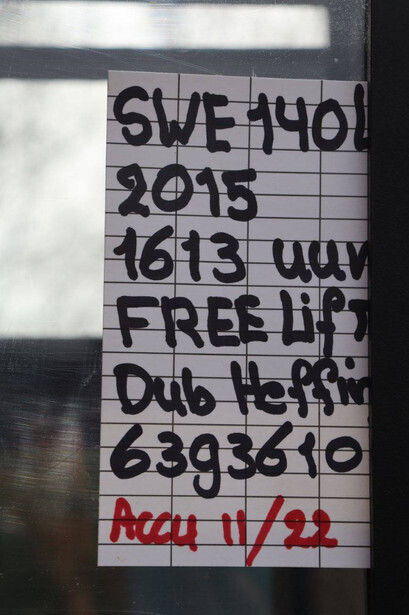 SWE 140L
2015
1613 uur
FREE Lift
Dub Heffin
6393610
Accu 11/22